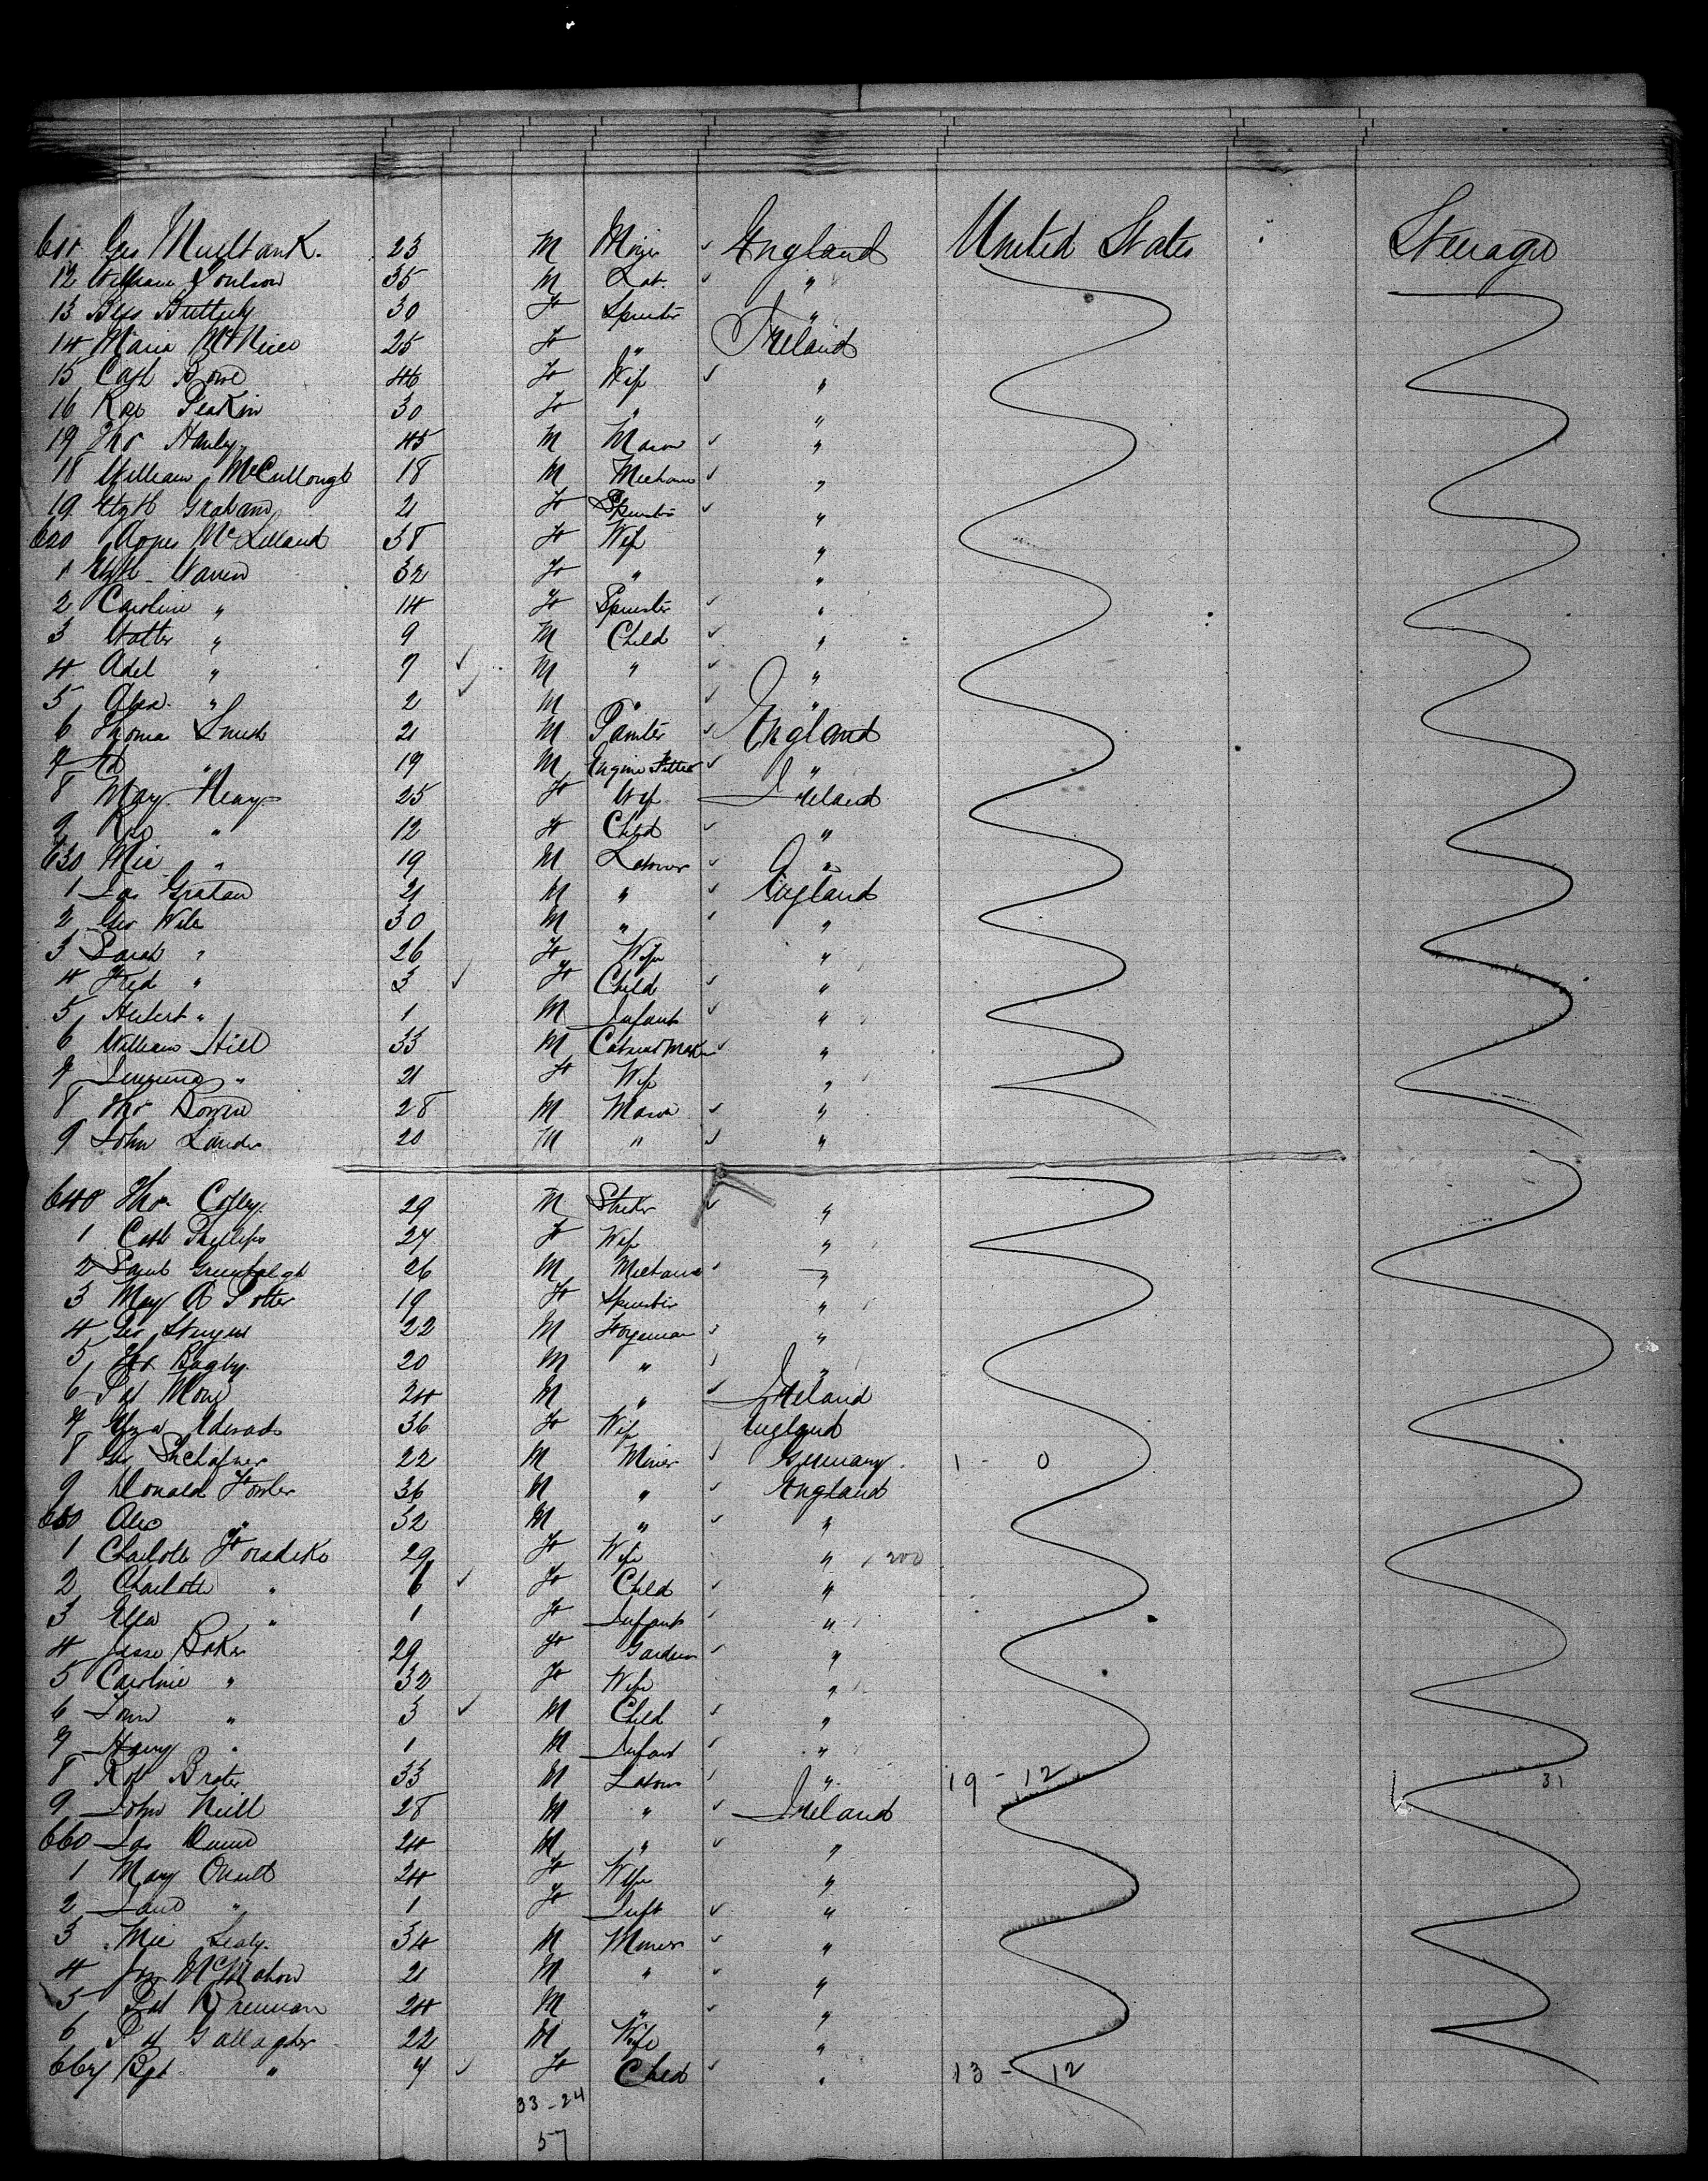 611 Geo Muelbank. 23 M England United States Steerage
12 William Poulson 35 M Lab. "
13 Bess Butterly 30 F Spinster "
14 Maria 25 F " Ireland
15 Cath Rowe 46 F Wife "
16 Peakin 30 F " "
19 Thos Hanley 45 M Mason "
18 William McCullough 18 M Mechanic "
19 Elizth Graham 21 F Spinster "
620 Agnes McLelland 38 F Wife "
1 Elizth Warren 32 F " "
2 Caroline " 14 F Spinster "
3 Walter " 9 M Child "
4 Adel " 7 M " "
5 Alex. " 2 M " "
6 Thomas Smith 21 M Painter England
7 Ed " 19 M Engine Fitter "
8 Mary Henry 25 F Wife Ireland
9 " 12 F Child "
630 Mic " 19 M Labourer "
1 Jas Graham 21 M " England
2 Geo Wild 30 M " "
3 Sarah " 26 F Wife "
4 Fred " 3 F Child "
5 Hubert " 1 M Infant "
6 William Hill 33 M Cabinet Maker "
7 " 21 F Wife "
8 Thos Bowne 28 M Mason "
9 John Lander 20 M " "
640 Thos Cofley 29 M Striker "
1 Cath Phillips 27 F Wife "
2 Saml Greenhalgh 26 M Mechanic "
3 Mary A Potter 19 F Spinster "
4 Geo Sturgess 22 M Forgeman "
5 Bagley 20 M " "
6 Pat 24 M " Ireland
7 Eliza Edwards 36 F Wife England
8 Geo Shchafner 22 M Miner Germany. 1 - 0
9 Donald Fowler 36 M " England
650 Alex " 32 M " "
1 Charlotte Forsdike 29 F Wife " 200
2 Charlotte " 6 F Child "
3 Ella " 1 F Infant "
4 Jesse Baker 29 F Gardener "
5 Caroline " 32 F Wife "
6 " 3 M Child "
7 Harry " 1 M Infant "
8 Robt Brater 33 M Labour " 19 - 12 31
9 John Neill 28 M " Ireland
660 Jas Quinn 24 M " "
1 Mary Oneill 24 F Wife "
2 Jane " 1 F Inft "
3 Mic Lealy. 34 M Miner "
4 Jos McMahon 21 M " "
5 Pat Brennan 24 M " "
6 Pat Gallagher 22 M Wife "
667 Bgt " 4 F Child " 13 - 12
33 - 24
57